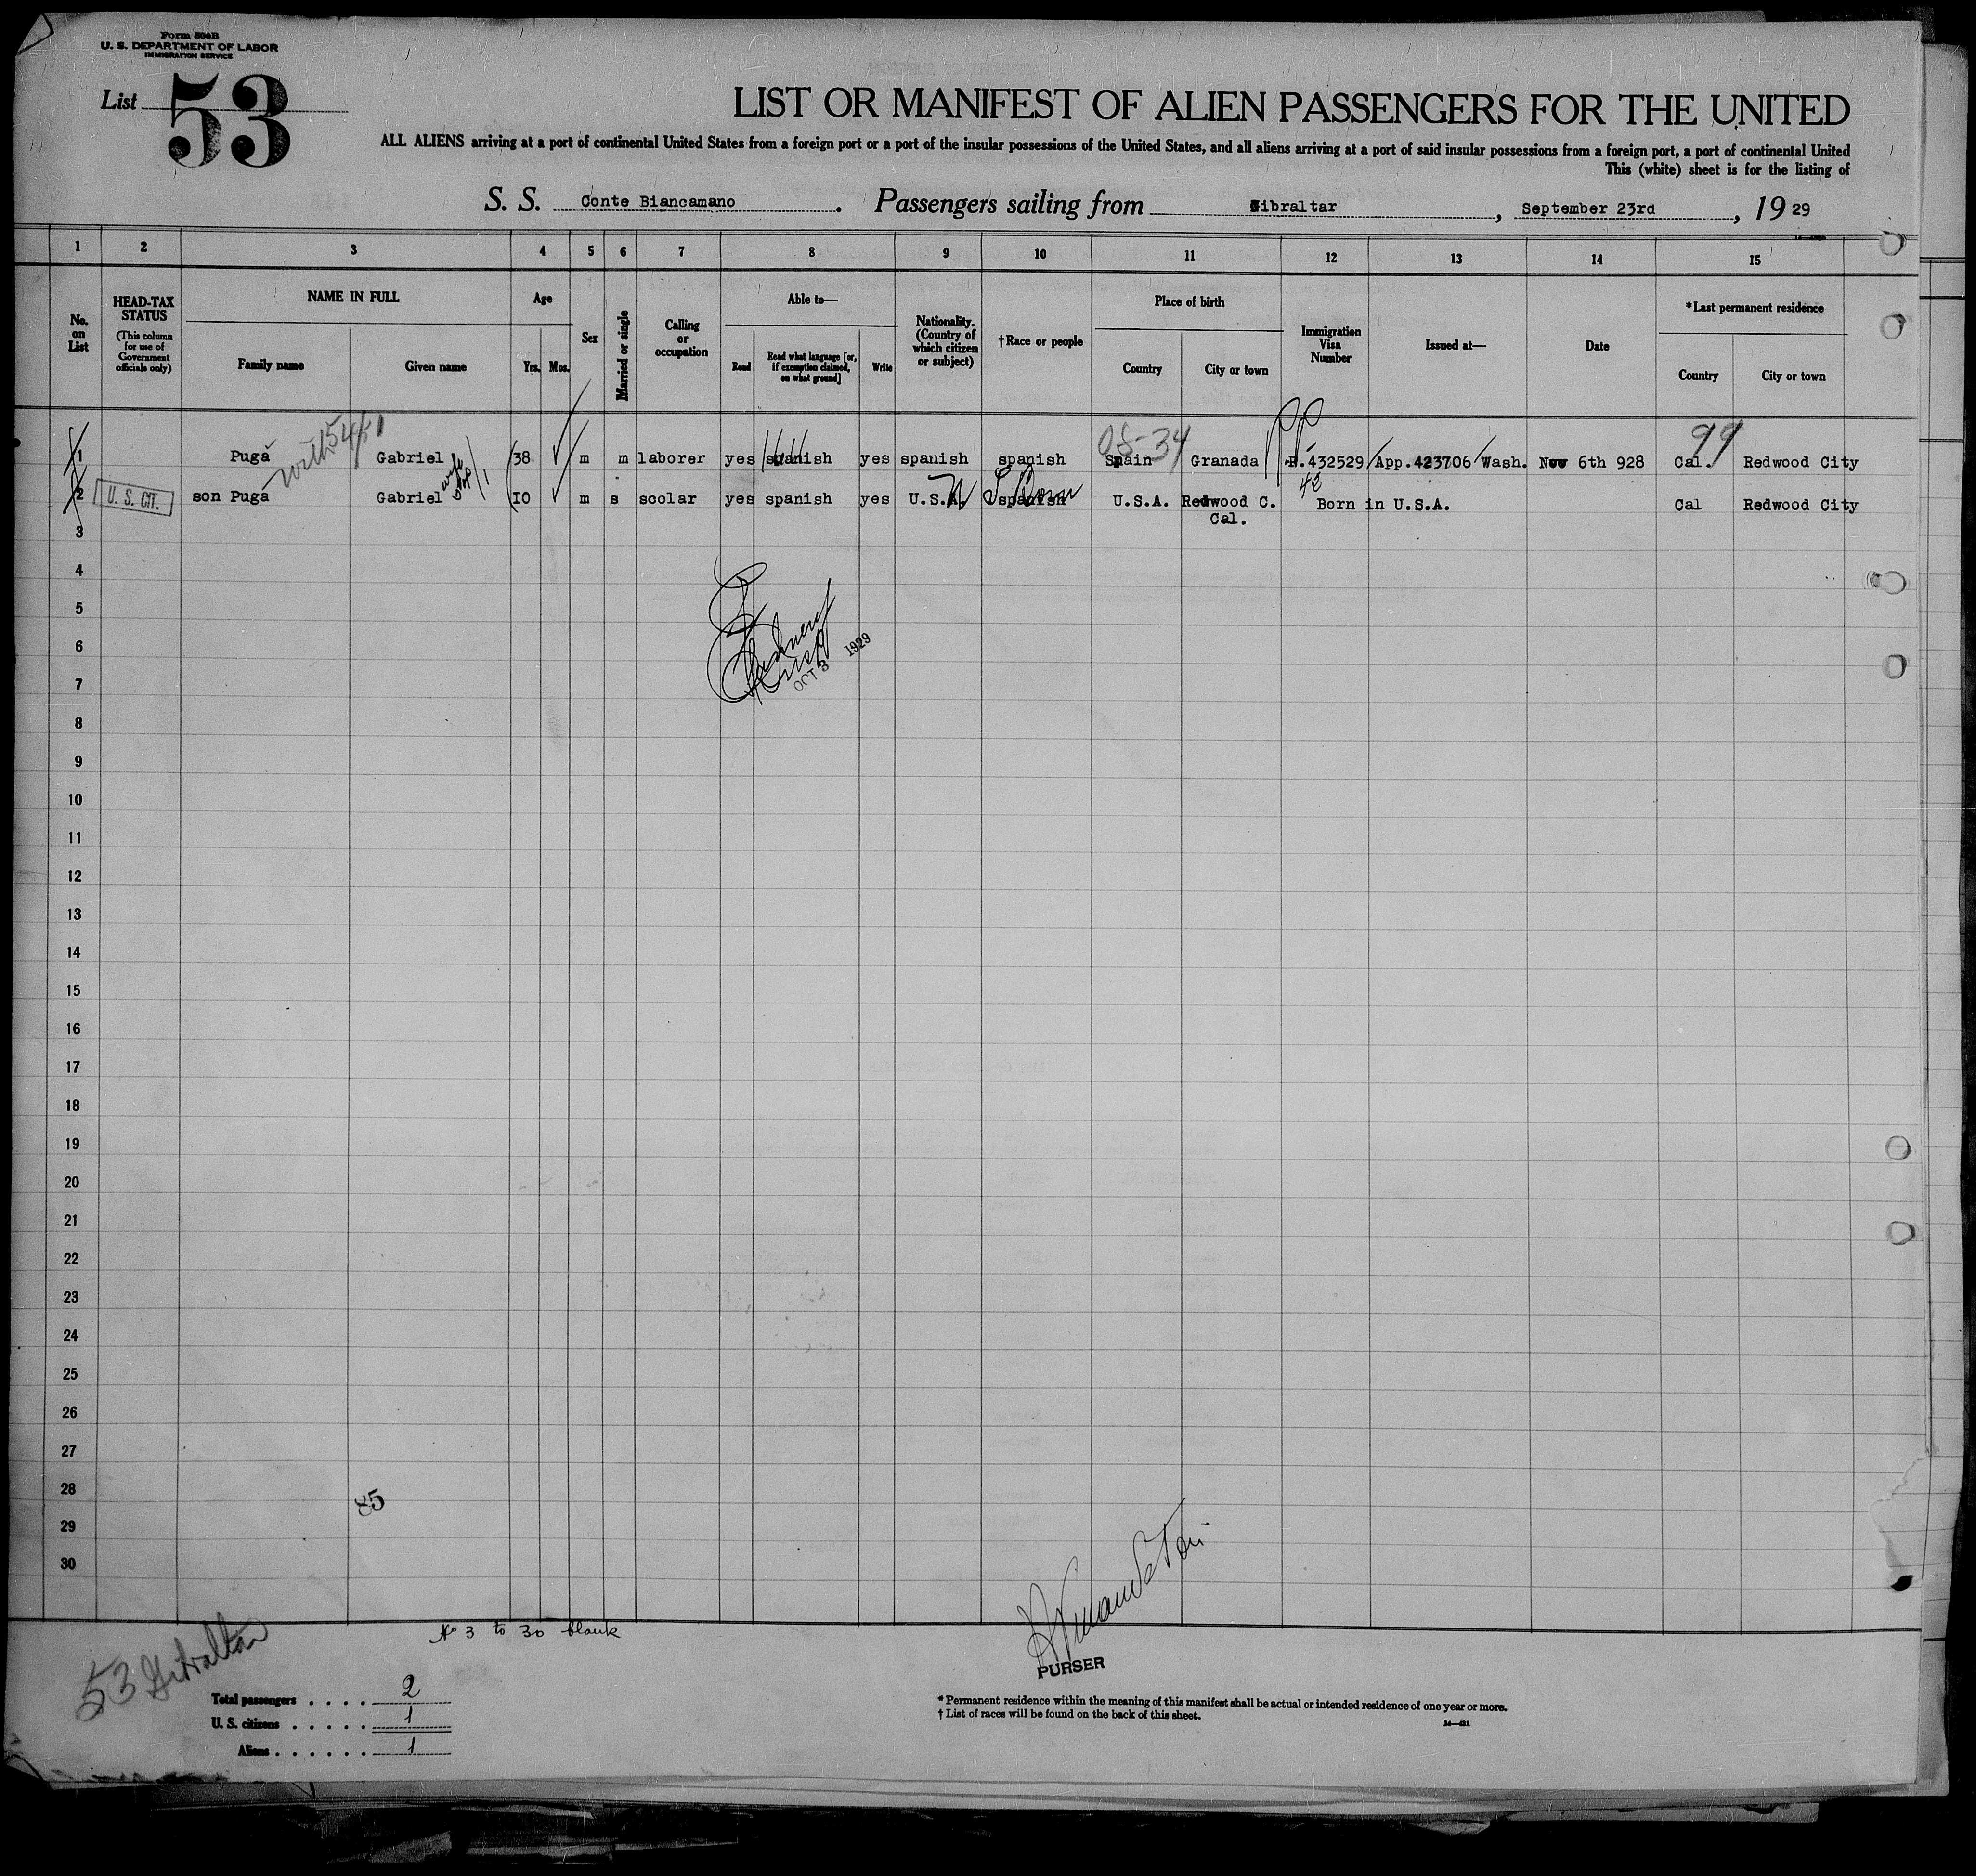 Form 500B
U. S. DEPARTMENT OF LABOR
IMMIGRATION SERVICE
List 53
LIST OR MANIFEST OF ALIEN PASSENGERS FOR THE UNITED
ALL ALIENS arriving at a port of continental United States from a foreign port or a port of the insular possessions of the United States, and all aliens arriving at a port of said insular possessions from a foreign port, a port of continental United
This (white) sheet is for the listing of
S. S. Conte Biancamano. Passengers sailing from Gibraltar, September 23rd, 1929
1 2 3 4 5 6 7 8 9 10 11 12 13 14 15
No. on List
HEAD-TAX STATUS
(This column for use of Government officials only)
NAME IN FULL
Family name Given name
Age
Yrs. Mos.
Sex
Married or single
Calling or occupation
Able to—
Read Read what language [or, if exemption claimed, on what ground] Write
Nationality. (Country of which citizen or subject)
†Race or people
Place of birth
Country City or town
Immigration Visa Number
Issued at—
Date
*Last permanent residence
Country City or town
with 54/51
08-34
99
1 Puga Gabriel 38 m m laborer yes spanish yes spanish spanish Spain Granada P.432529/App.423706/Wash. Nov 6th 928 Cal. Redwood City
2 U. S. CIT. son Puga Gabriel 10 m s scolar yes spanish yes U.S.A. spanish U.S.A. Redwood C. Cal. Born in U.S.A. Cal Redwood City
3
4
5
6
OCT 3 1929
7
8
9
10
11
12
13
14
15
16
17
18
19
20
21
22
23
24
25
26
27
28
85
29
30
No 3 to 30 blank
53 Gibraltar
PURSER
Total passengers . . . . 2
U. S. citizens . . . . . 1
Aliens . . . . . . 1
* Permanent residence within the meaning of this manifest shall be actual or intended residence of one year or more.
† List of races will be found on the back of this sheet.
14—421